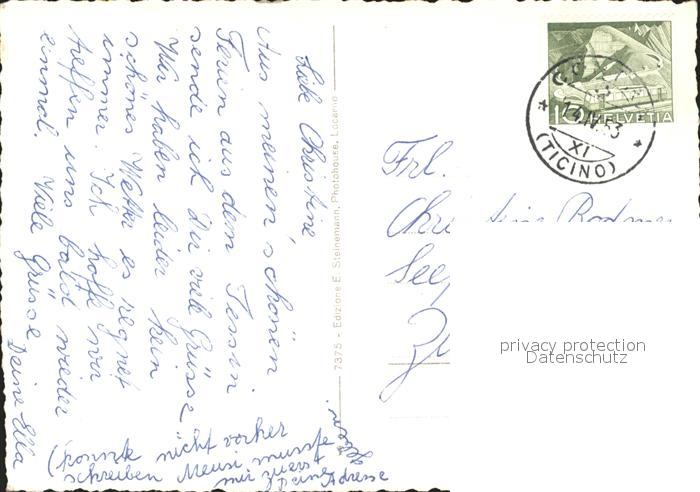 Liebe Christine
Aus meinen schönen
Ferien aus dem Tessin
sende ich Dir viele Grüsse
Wir haben leider kein
schönes Wetter es regnet
immer. Ich hoffe wir
treffen uns bald wieder
einmal. Viele Grüsse
Deine Ella
(konnte nicht vorher
schreiben Meusi musste
mir zuerst Deine Adresse
7375 - Edizione E. Steinemann, Photohouse, Locarno
HELVETIA
14.IV.53
XI
(TICINO)
Frl.
privacy protection
Datenschutz